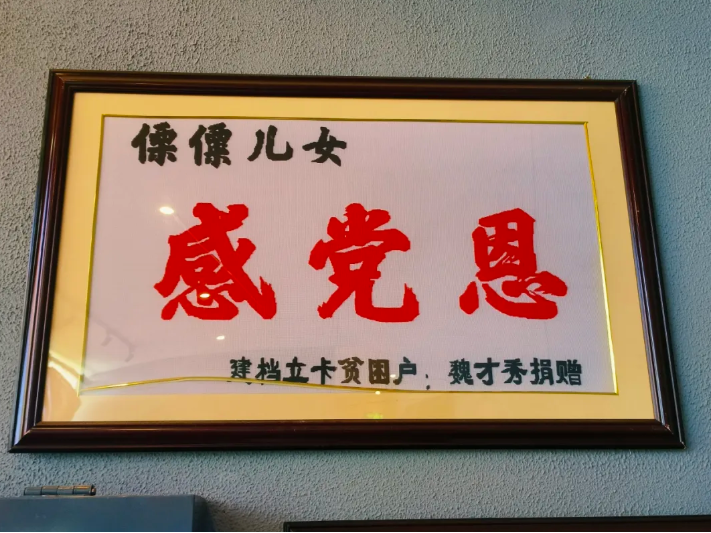 傈僳儿女
感党恩
建档立卡贫困户：魏才秀捐赠